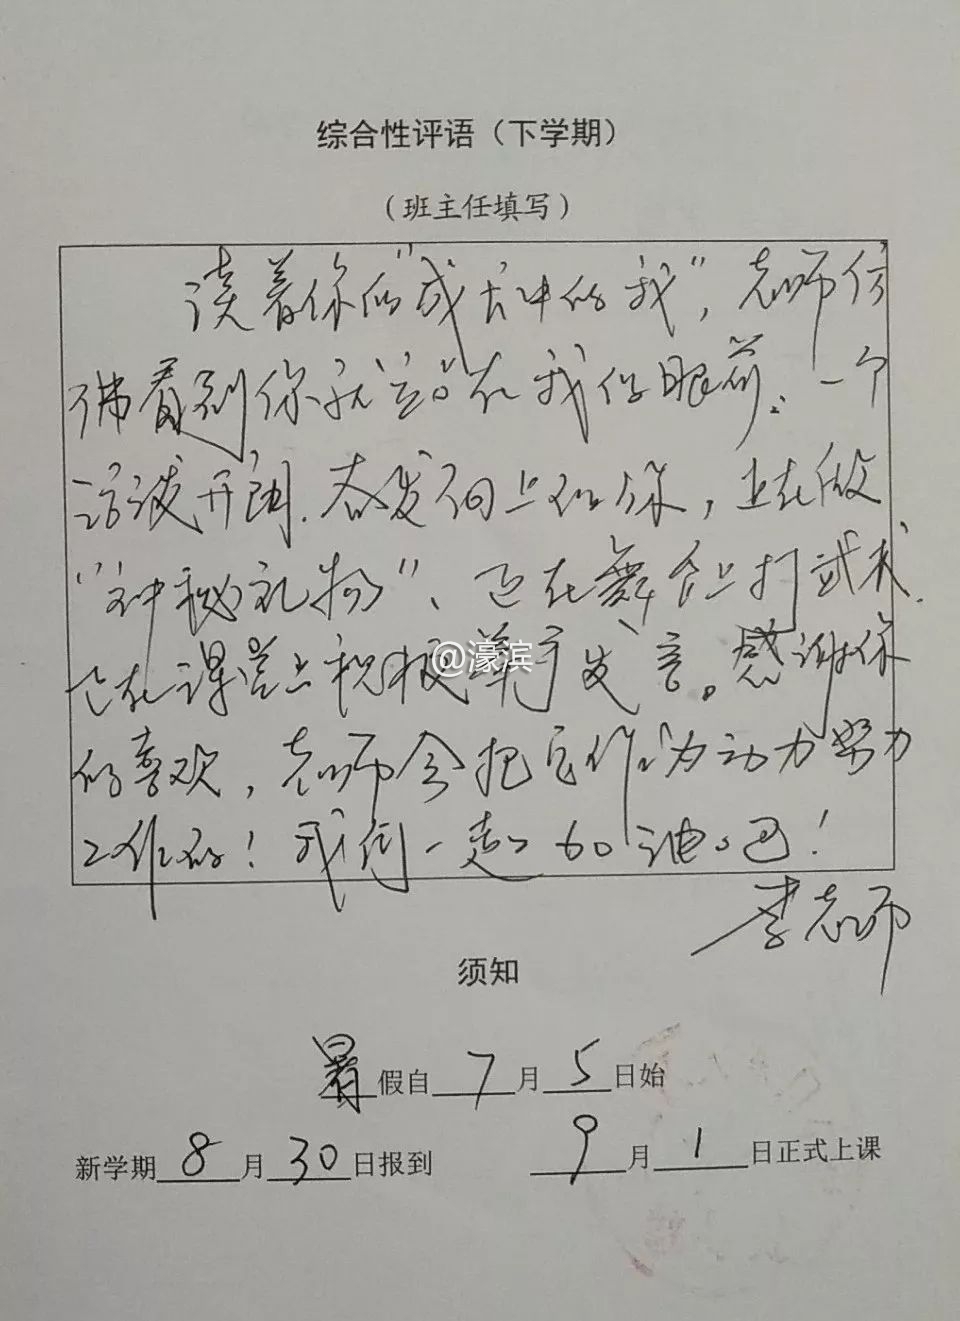 综合性评语（下学期）
（班主任填写）
读着你的“成长中的我”，老师仿
佛看到你就站在我的眼前：一个
活泼开朗、奋发向上的你，正在做
“神秘礼物”、正在舞会上打武术、
正在课堂上积极举手发言。感谢你
@濠滨
的喜欢，老师会把它作为动力努力
工作的！我们一起加油吧！
李老师
须知
暑假自7月5日始
新学期8月30日报到 9月1日正式上课